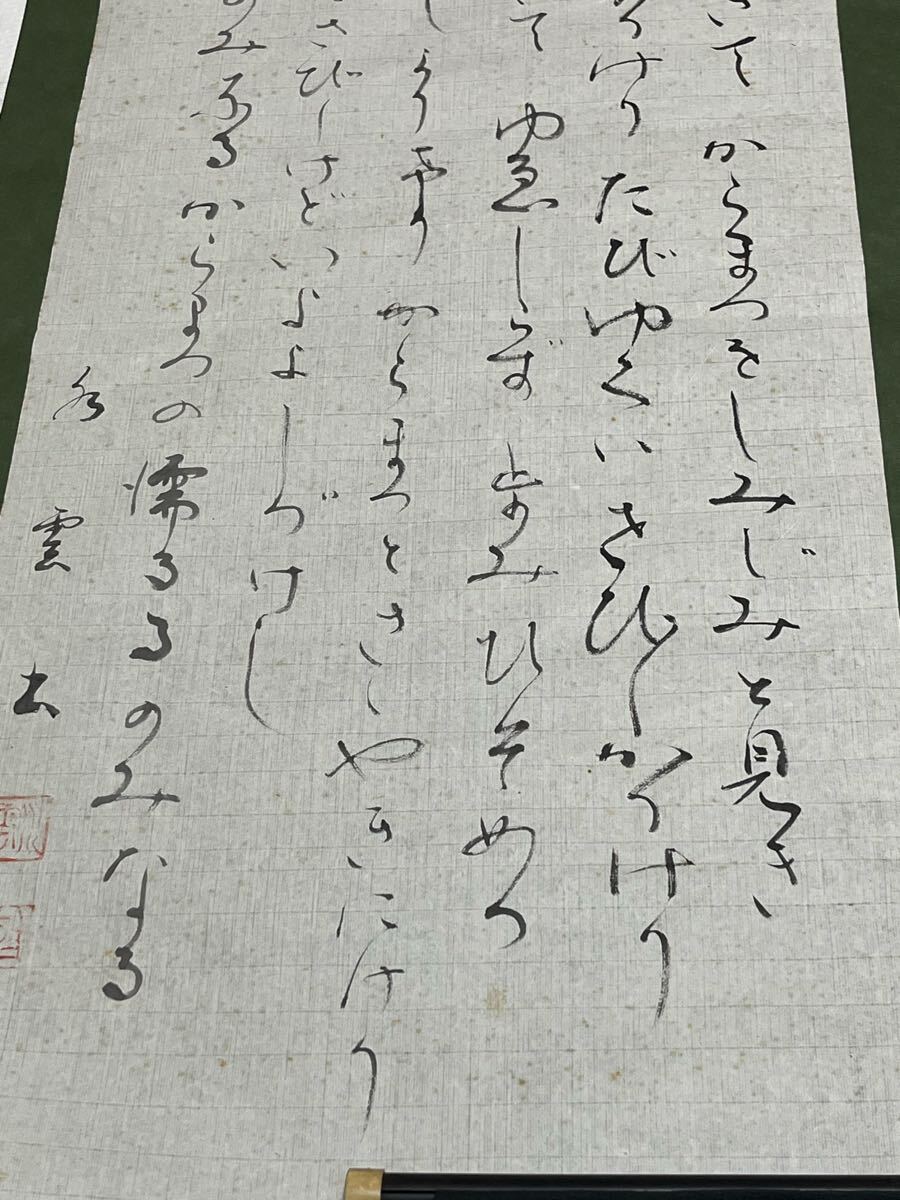 いて からまつをしみじみと見き
りけり たびゆくはさびしかりけり
て ゆゑしらず 歩みひそめつ
しかりけり からまつとささやきにけり
さびしけどいよよしづけし
のみなる からまつの濡るるのみなる
雲